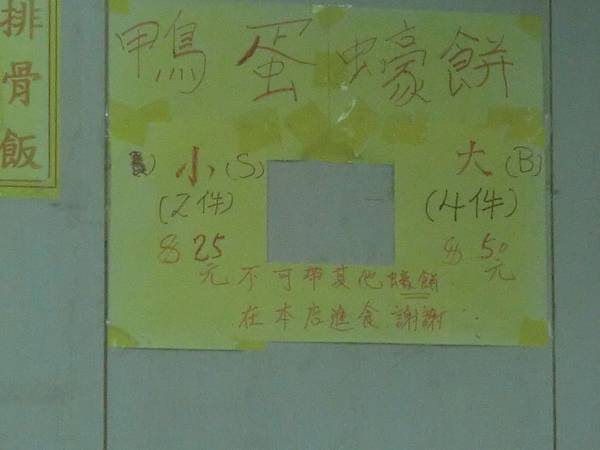 排骨飯
鴨蛋蠔餅
小(S)
(2件)
$25
元
大(B)
(4件)
$50
元
不可帶其他蠔餅
在本店進食謝謝